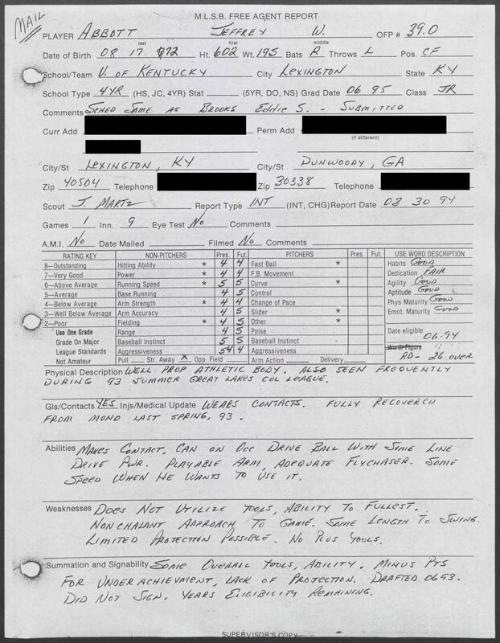 MAIL
M.L.S.B. FREE AGENT REPORT
PLAYER ABBOTT JEFFREY W. OFP # 39.0
last first middle
Date of Birth 08 17 72 Ht. 602 Wt. 195 Bats R Throws L Pos. CF
School/Team U of KENTUCKY City LEXINGTON State KY
School Type 4YR (HS, JC, 4YR) Stat (5YR, DO, NS) Grad Date 06 95 Class JR
Comments SCHED SAME AS BROOKS EDDIE S. - SUBMITTED
Curr Add Perm Add
(if different)
City/St LEXINGTON, KY City/St DUNWOODY, GA
Zip 40504 Telephone Zip 30338 Telephone
Scout J. MARTZ Report Type INT (INT, CHG) Report Date 03 30 94
Games 1 Inn. 9 Eye Test No Comments
A.M.I. No Date Mailed Filmed No Comments
RATING KEY NON-PITCHERS Pres. Fut. PITCHERS Pres. Fut. USE WORD DESCRIPTION
8—Outstanding Hitting Ability * 4 4 Fast Ball * Habits GOOD
7—Very Good Power * 4 4 F.B. Movement Dedication FAIR
6—Above Average Running Speed * 5 5 Curve * Agility GOOD
5—Average Base Running 4 4 Control Aptitude GOOD
4—Below Average Arm Strength * 4 4 Change of Pace Phys Maturity GOOD
3—Well Below Average Arm Accuracy 4 4 Slider * Emot. Maturity GOOD
2—Poor Fielding * 4 4 Other *
Use One Grade Range 4 5 Poise Date eligible
Grade On Major Baseball Instinct 5 5 Baseball Instinct 06-94
League Standards Aggressiveness 5 4 4 Aggressiveness
Not Amateur Pull Str. Away X Opp. Field Arm Action Delivery RD - 26 OVER
Physical Description WELL PROP ATHLETIC BODY. ALSO SEEN FREQUENTLY
DURING 93 SUMMER GREAT LAKES COL LEAGUE.
Gls/Contacts YES Injs/Medical Update WEARS CONTACTS. FULLY RECOVERED
FROM MONO LAST SPRING, 93.
Abilities MAKES CONTACT. CAN ON OCC DRIVE BALL WITH SOME LINE
DRIVE PWR. PLAYABLE ARM, ADEQUATE FLYCHASER. SOME
SPEED WHEN HE WANTS TO USE IT.
Weaknesses DOES NOT UTILIZE TOOLS, ABILITY TO FULLEST.
NONCHALANT APPROACH TO GAME. SOME LENGTH TO SWING.
LIMITED PROJECTION POSSIBLE. NO PLUS TOOLS.
Summation and Signability SOME OVERALL TOOLS, ABILITY. MINUS PTS
FOR UNDERACHIEVEMENT, LACK OF PROJECTION. DRAFTED 0693.
DID NOT SIGN. YEARS ELIGIBILITY REMAINING.
SUPERVISOR'S COPY